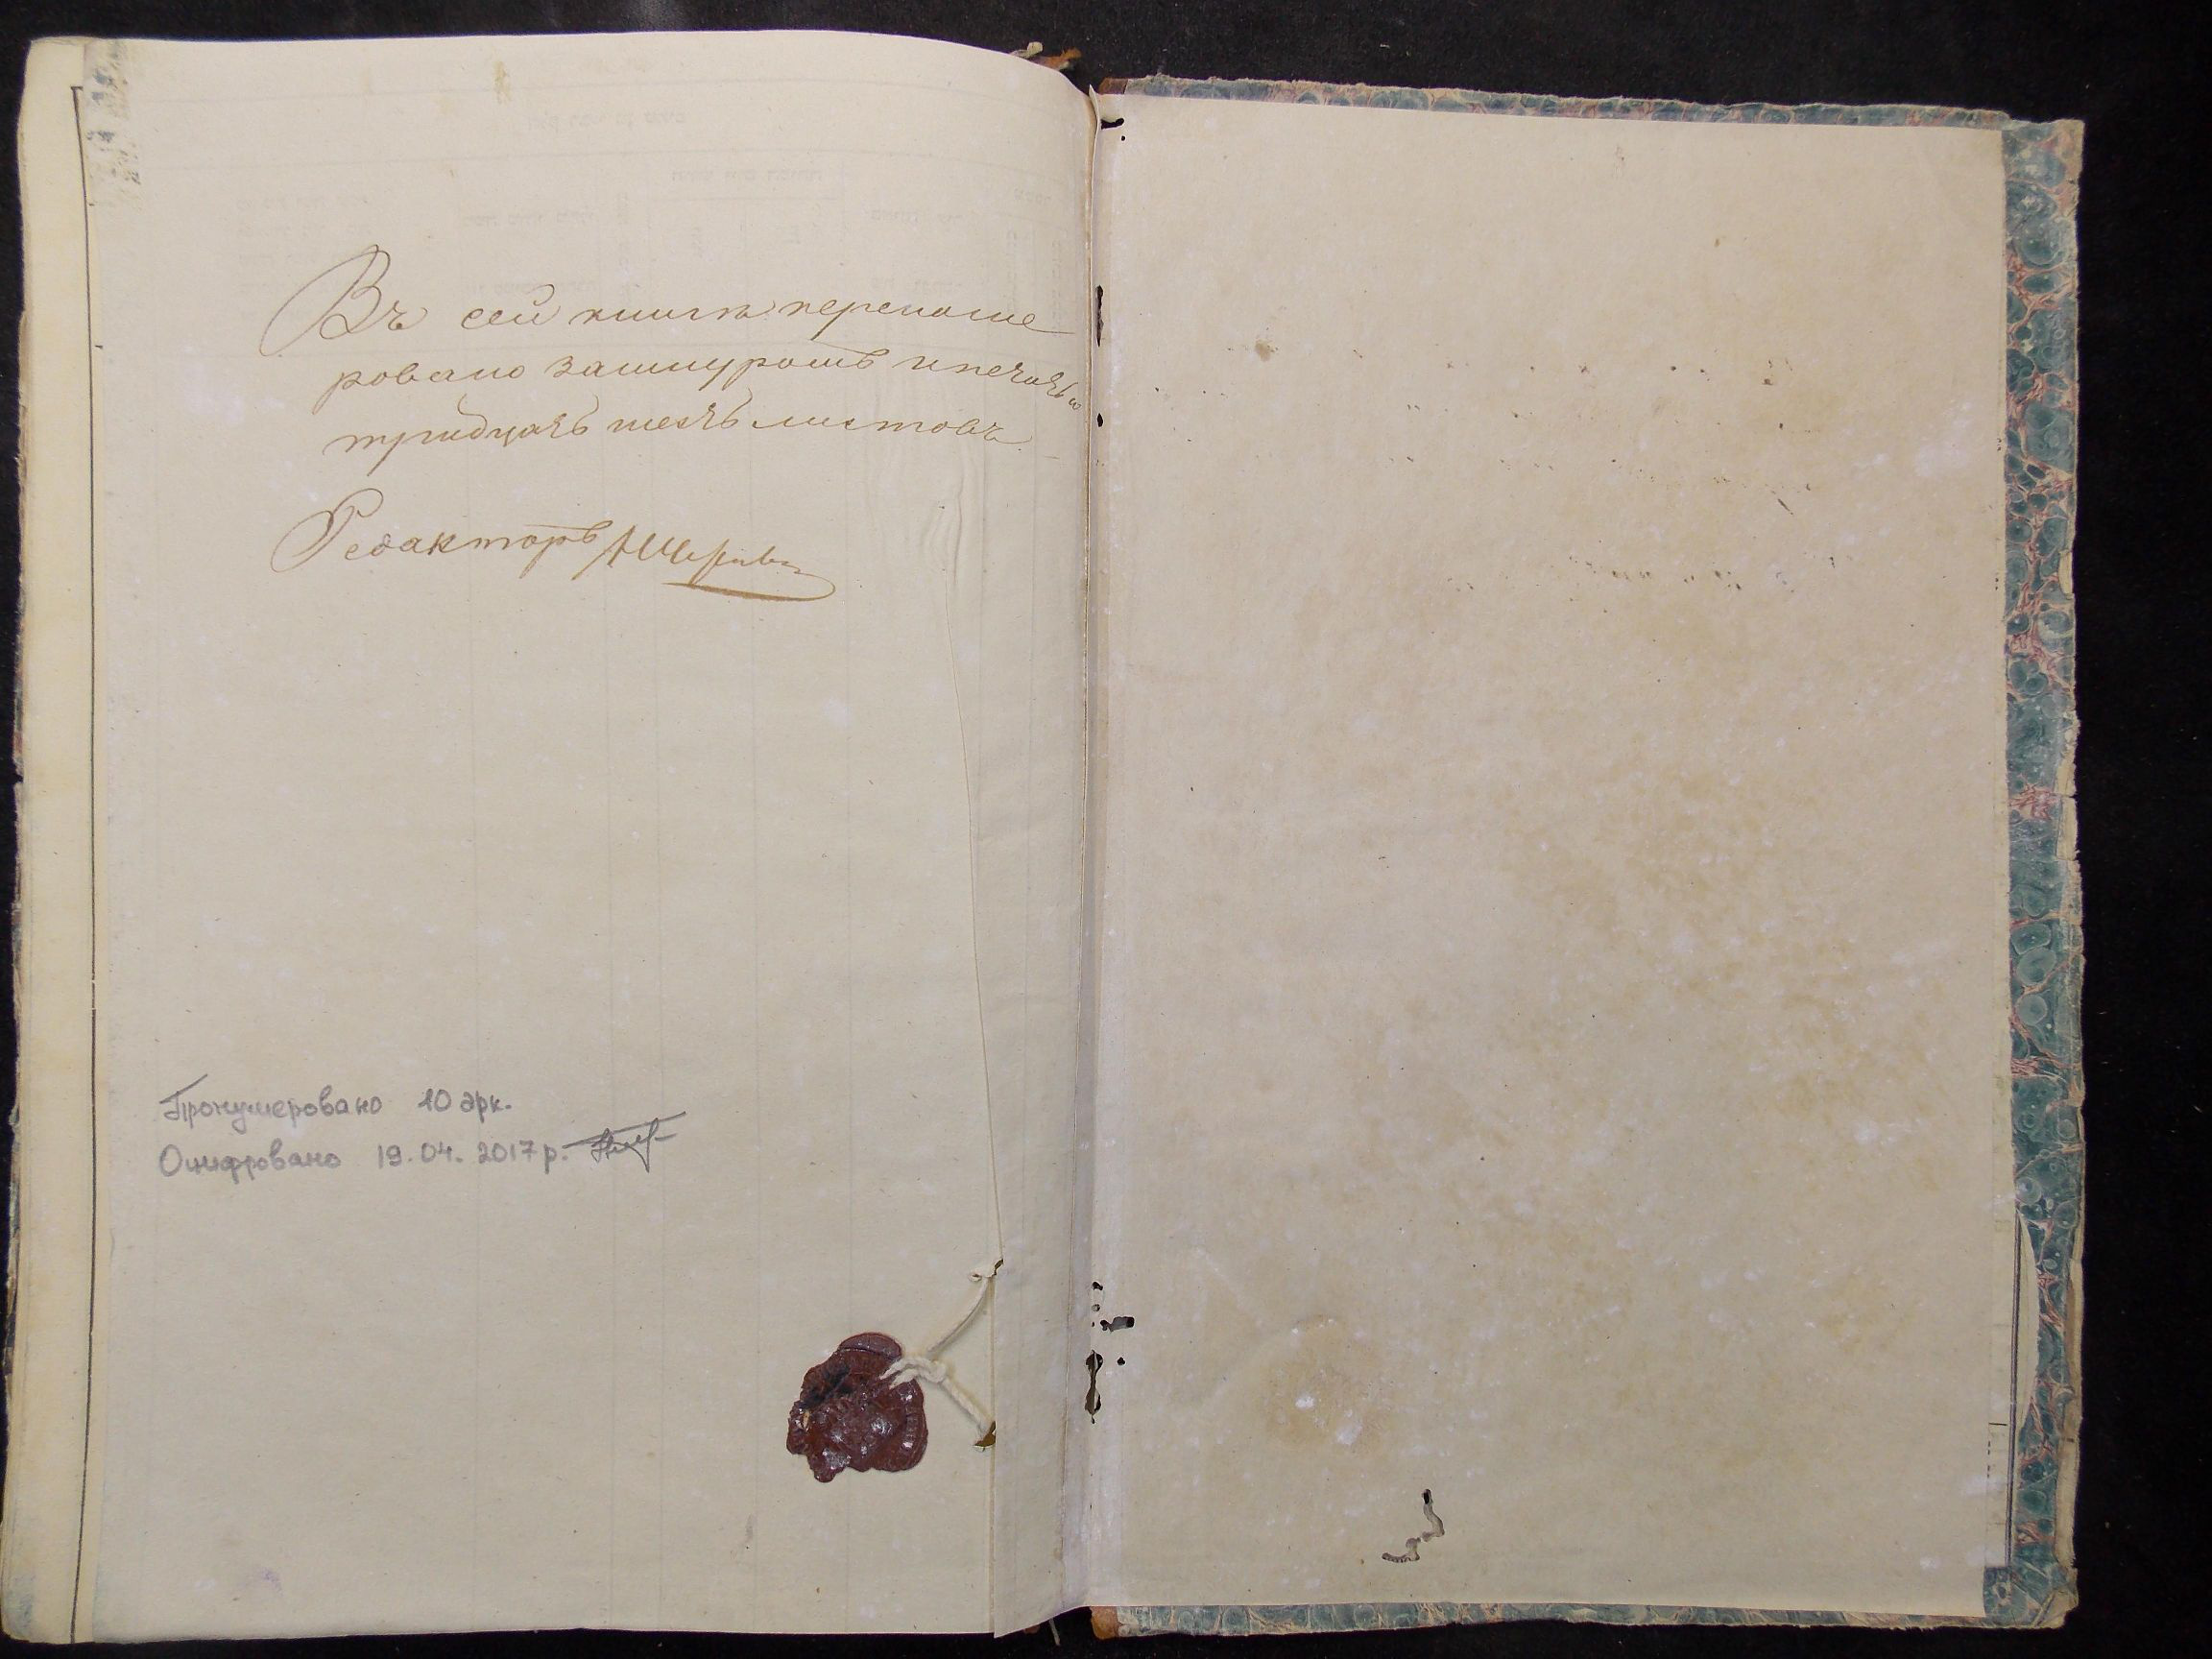 Въ сей книгѣ перенуме
ровано за шнуромъ и печатью
тридцать шесть листовъ
Редакторъ
Пронумеровано 10 арк.
Оцифровано 19.04.2017 р.